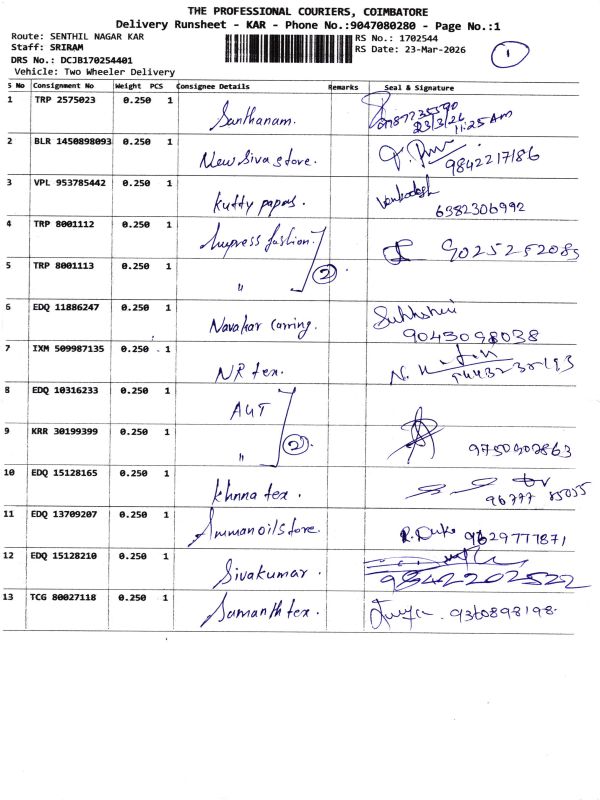 THE PROFESSIONAL COURIERS, COIMBATORE
Delivery Runsheet - KAR - Phone No.:9047080280 - Page No.:1
Route: SENTHIL NAGAR KAR
RS No.: 1702544
1
Staff: SRIRAM
RS Date: 23-Mar-2026
DRS No.: DCJB170254401
Vehicle: Two Wheeler Delivery
S No Consignment No Weight PCS Consignee Details Remarks Seal & Signature
1 TRP 2575023 0.250 1 Santhanam. 23/3/26 11:25 Am
2 BLR 1450898093 0.250 1 New Siva store. 9842217186
3 VPL 953785442 0.250 1 Kutty papas. Venkadesh 6382306992
4 TRP 8001112 0.250 1 Impress fashion 9025252085
5 TRP 8001113 0.250 1 " 2
6 EDQ 11886247 0.250 1 Navakar carring. 9043098038
7 IXM 509987135 0.250 1 NR tex.
8 EDQ 10316233 0.250 1 AGT
9 KRR 30199399 0.250 1 " 2 9750902863
10 EDQ 15128165 0.250 1 khnna tex. 96777 85055
11 EDQ 13709207 0.250 1 Amman oil store. 9629777871
12 EDQ 15128210 0.250 1 Sivakumar. 9842202522
13 TCG 80027118 0.250 1 Samanth tex. 9360898198